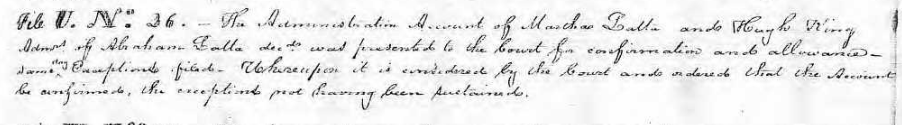 File U. No. 36. — The Administration Account of Marthas Falls and Hugh King
Admrs. of Abraham Falls decd. was presented to the Court for confirmation and allowance —
same day Exceptions filed — Whereupon it is considered by the Court and ordered that the Account
be confirmed, the exceptions not having been sustained.